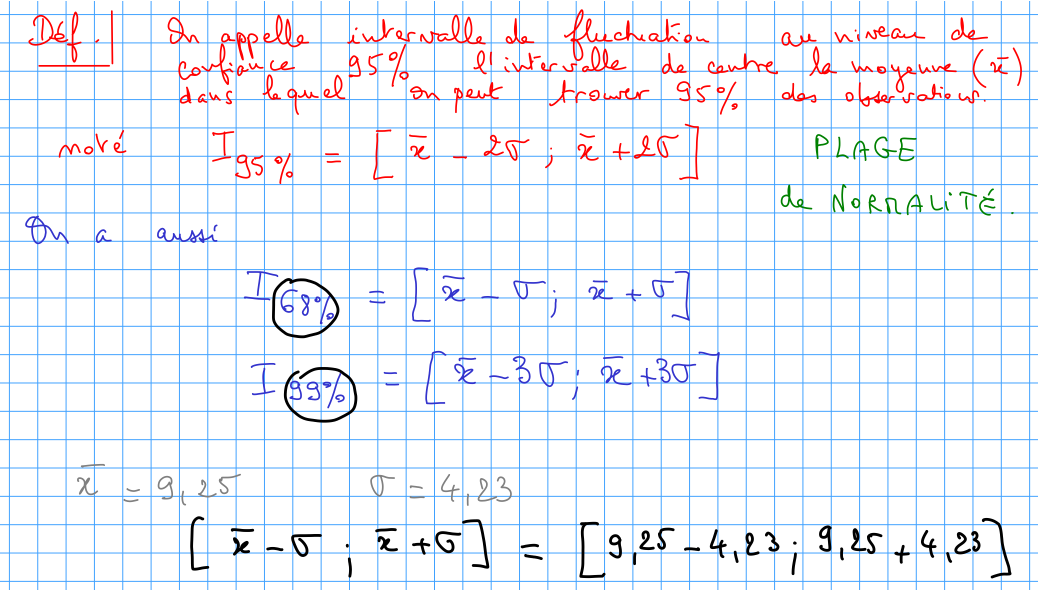 Déf.| On appelle intervalle de fluctuation au niveau de
confiance 95% l'intervalle de centre la moyenne (x̄)
dans lequel on peut trouver 95% des observations.
noté I95% = [x̄ - 2σ ; x̄ + 2σ] PLAGE
de NORMALiTÉ.
On a aussi
I68% = [x̄ - σ ; x̄ + σ]
I99% = [x̄ - 3σ ; x̄ + 3σ]
x̄ = 9,25 σ = 4,23
[x̄ - σ ; x̄ + σ] = [9,25 - 4,23 ; 9,25 + 4,23]